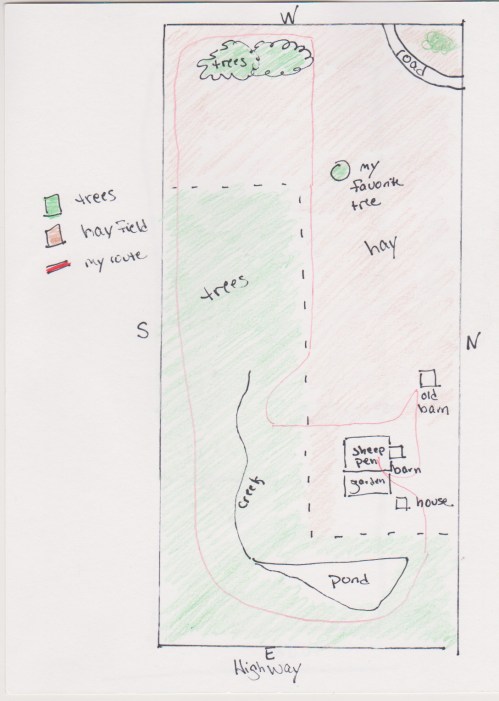 W
trees
Road
my
favorite
tree
trees
hay field
my route
hay
trees
S
N
old
barn
sheep
pen
barn
garden
house
creek
pond
E
Highway